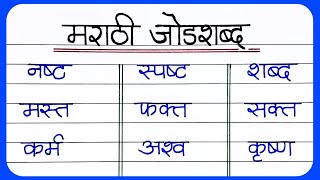 मराठी जोडशब्द
नष्ट स्पष्ट शब्द
मस्त फक्त सक्त
कर्म अश्व कृष्ण